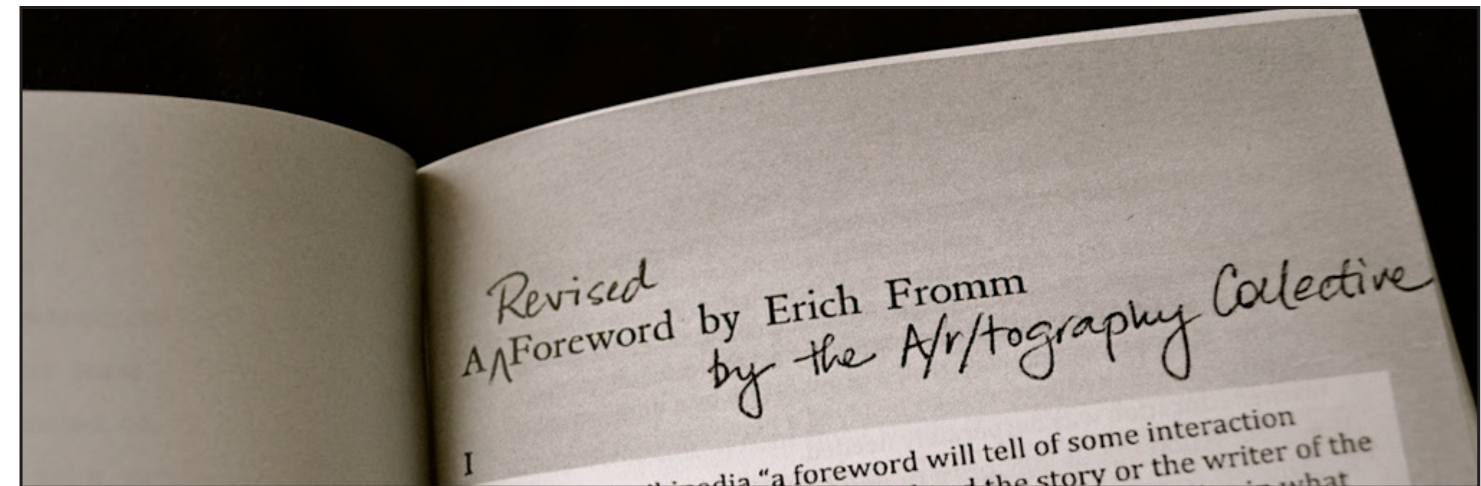 Revised
A Foreword by Erich Fromm
by the A/r/tography Collective
I
“a foreword will tell of some interaction
the story or the writer of the
what